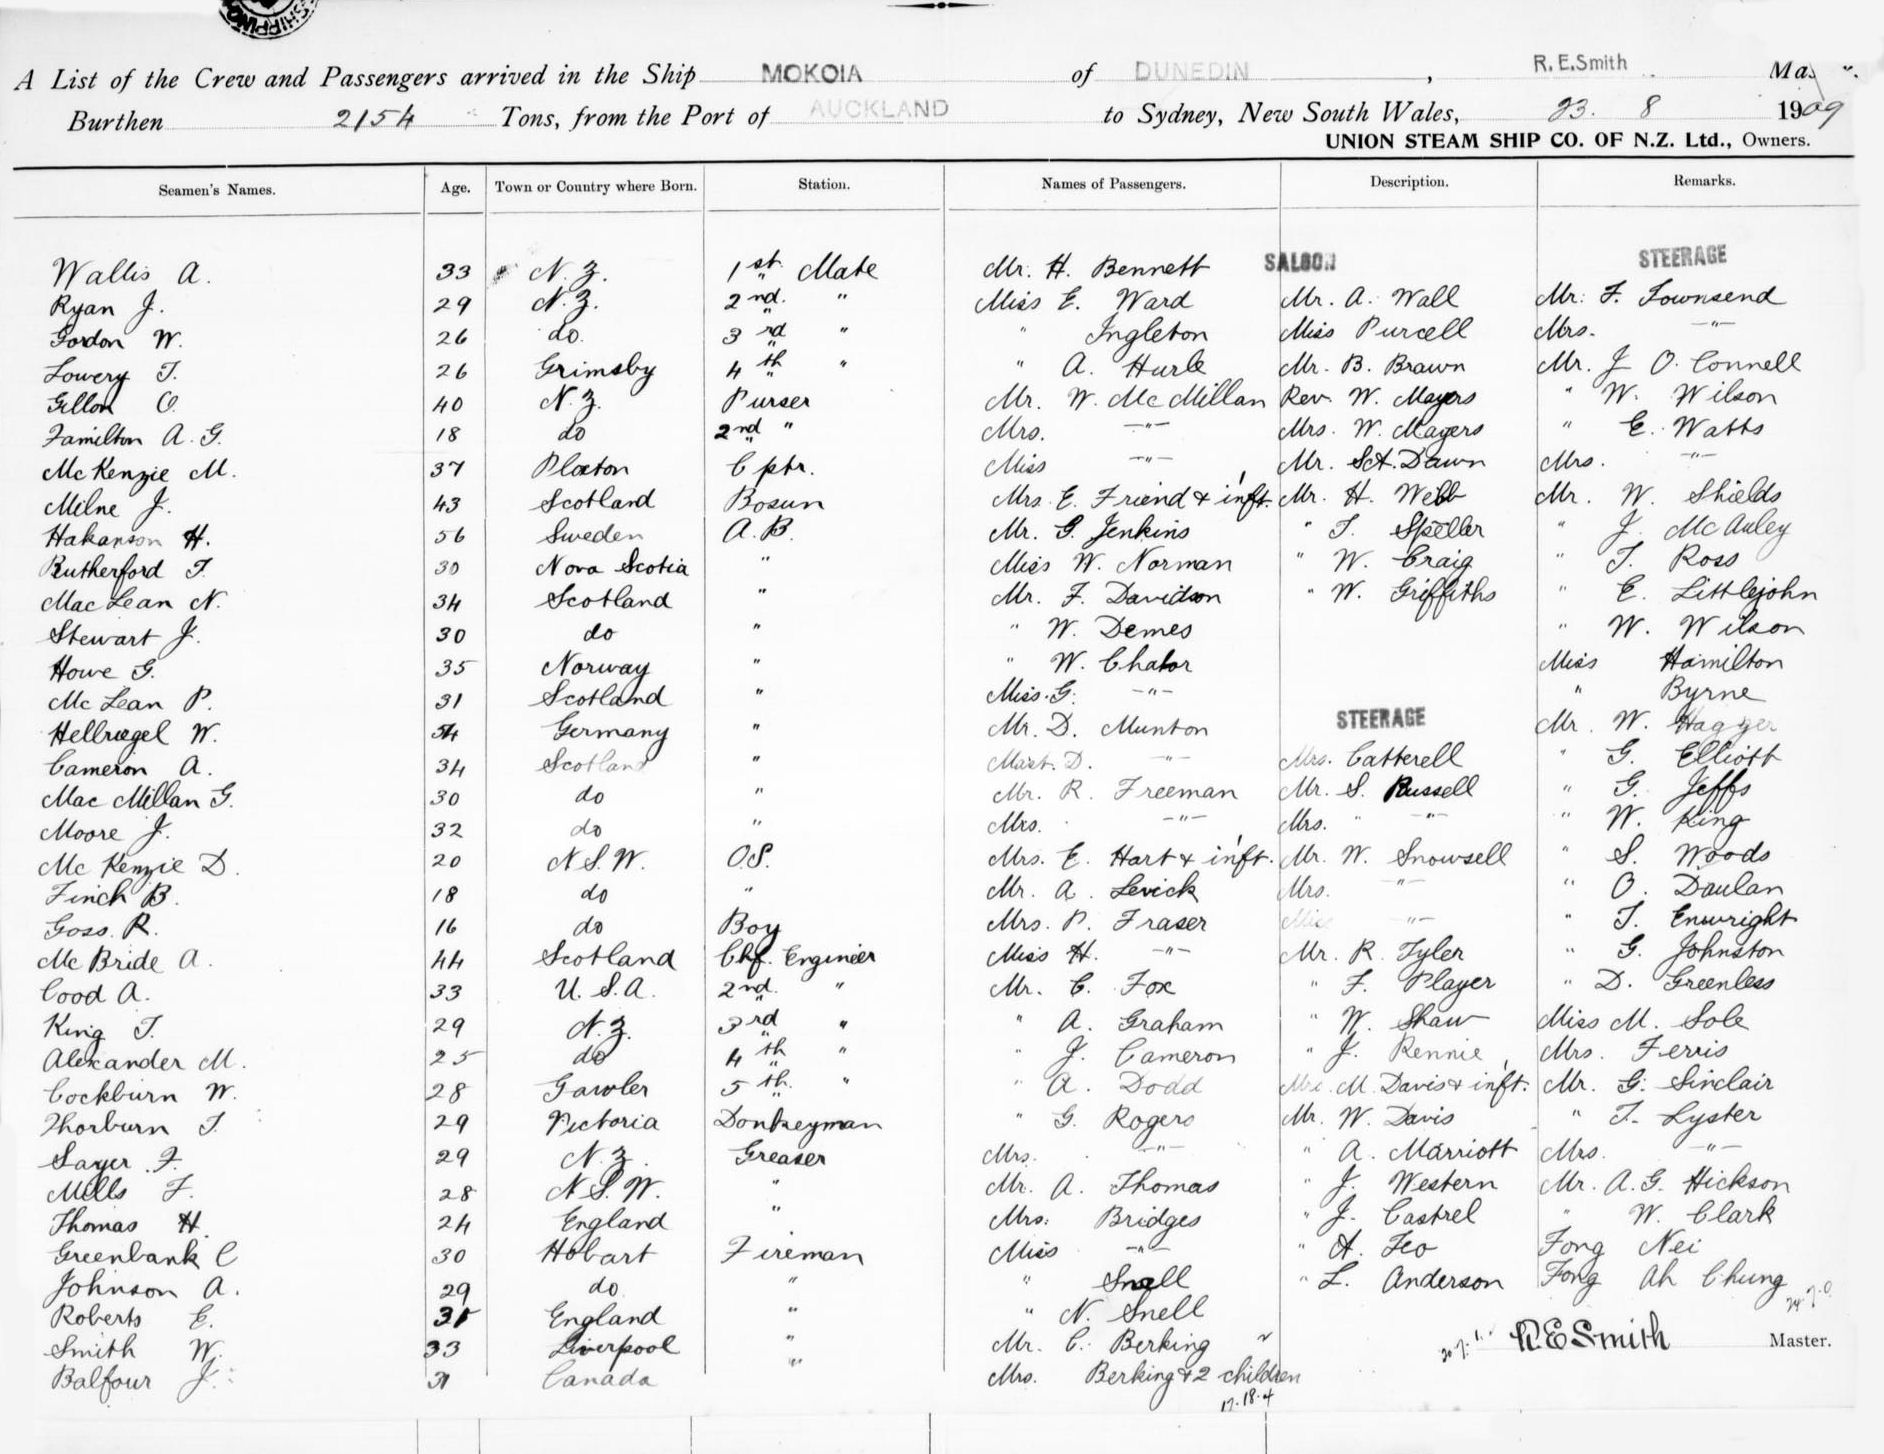 SHIPPING
A List of the Crew and Passengers arrived in the Ship MOKOIA of DUNEDIN, R. E. Smith
Burthen 2154 Tons, from the Port of AUCKLAND to Sydney, New South Wales, 23. 8 1909
UNION STEAM SHIP CO. OF N.Z. Ltd., Owners.
Seamen's Names. Age. Town or Country where Born. Station. Names of Passengers. Description. Remarks.
SALOON STEERAGE
Wallis A. 33 N.Z. 1st Mate Mr. H. Bennett
Ryan J. 29 N.Z. 2nd. " Miss E. Ward Mr. A. Wall Mr. F. Townsend
Gordon W. 26 do. 3rd " " Ingleton Miss Purcell Mrs. -"-
Lowery T. 26 Grimsby 4th " " A. Hurle Mr. B. Brawn Mr. J O. Connell
Gillon O. 40 N.Z. Purser Mr. W. McMillan Rev. W. Mayers " W. Wilson
Familton A. G. 18 do 2nd " Mrs. -"- Mrs. W. Mayers " E. Watts
McKenzie M. 37 Ploxton C ptr. Miss -"- Mr. Dawn Mrs. -"-
Milne J. 43 Scotland Bosun Mrs. E. Friend & inft. Mr. H. Webb Mr. W. Shields
Hakanson H. 56 Sweden A.B. Mr. G. Jenkins " T. Speller " J. McAuley
Rutherford T. 30 Nova Scotia " Miss W. Norman " W. Craig " T. Ross
MacLean N. 34 Scotland " Mr. F. Davidson " W. Griffiths " E. Littlejohn
Stewart J. 30 do " " W. Demes " W. Wilson
Howe G. 35 Norway " " W. Chator Miss Hamilton
McLean P. 31 Scotland " Miss. G. -"- " Byrne
STEERAGE
Hellriegel W. 54 Germany " Mr. D. Munton Mr. W. Hagger
Cameron A. 34 Scotland " Mast. D. -"- Mrs. Catterell " G. Elliott
MacMillan G. 30 do " Mr. R. Freeman Mr. S. Russell " G. Jeffs
Moore J. 32 do " Mrs. -"- Mrs. " -"- " W. King
McKenzie D. 20 N.S.W. O.S. Mrs. E. Hart & inft. Mr. W. Snowsell " S. Woods
Finch B. 18 do " Mr. A. Levick Mrs. -"- " O. Daulan
Goss. R. 16 do Boy Mrs. P. Fraser Miss -"- " T. Enwright
McBride A. 44 Scotland Chf. Engineer Miss H. -"- Mr. R. Tyler " G. Johnston
Cood A. 33 U.S.A. 2nd. " Mr. C. Fox " F. Player " D. Greenless
King T. 29 N.Z. 3rd " " A. Graham " W. Shaw Miss M. Sole
Alexander M. 25 do 4th " " J. Cameron " J. Rennie Mrs. Ferris
Cockburn W. 28 Gawler 5th. " " A. Dodd Mrs. M. Davis & inft. Mr. G. Sinclair
Thorburn T. 29 Victoria Donkeyman " G. Rogers Mr. W. Davis " T. Lyster
Sayer F. 29 N.Z. Greaser Mrs. -"- " A. Marriott Mrs. -"-
Mills F. 28 N.S.W. " Mr. A. Thomas " J. Western Mr. A.G. Hickson
Thomas H. 24 England " Mrs. Bridges " J. Castrel " W. Clark
Greenbank C 30 Hobart Fireman Miss -"- " A. Feo Fong Nei
Johnson A. 29 do " " Snell " L. Anderson Fong Ah Chung
Roberts E. 31 England " " N. Snell
Smith W. 33 Liverpool " Mr. C. Berking R E Smith Master.
Balfour J. 31 Canada " Mrs. Berking & 2 children
17.18.4